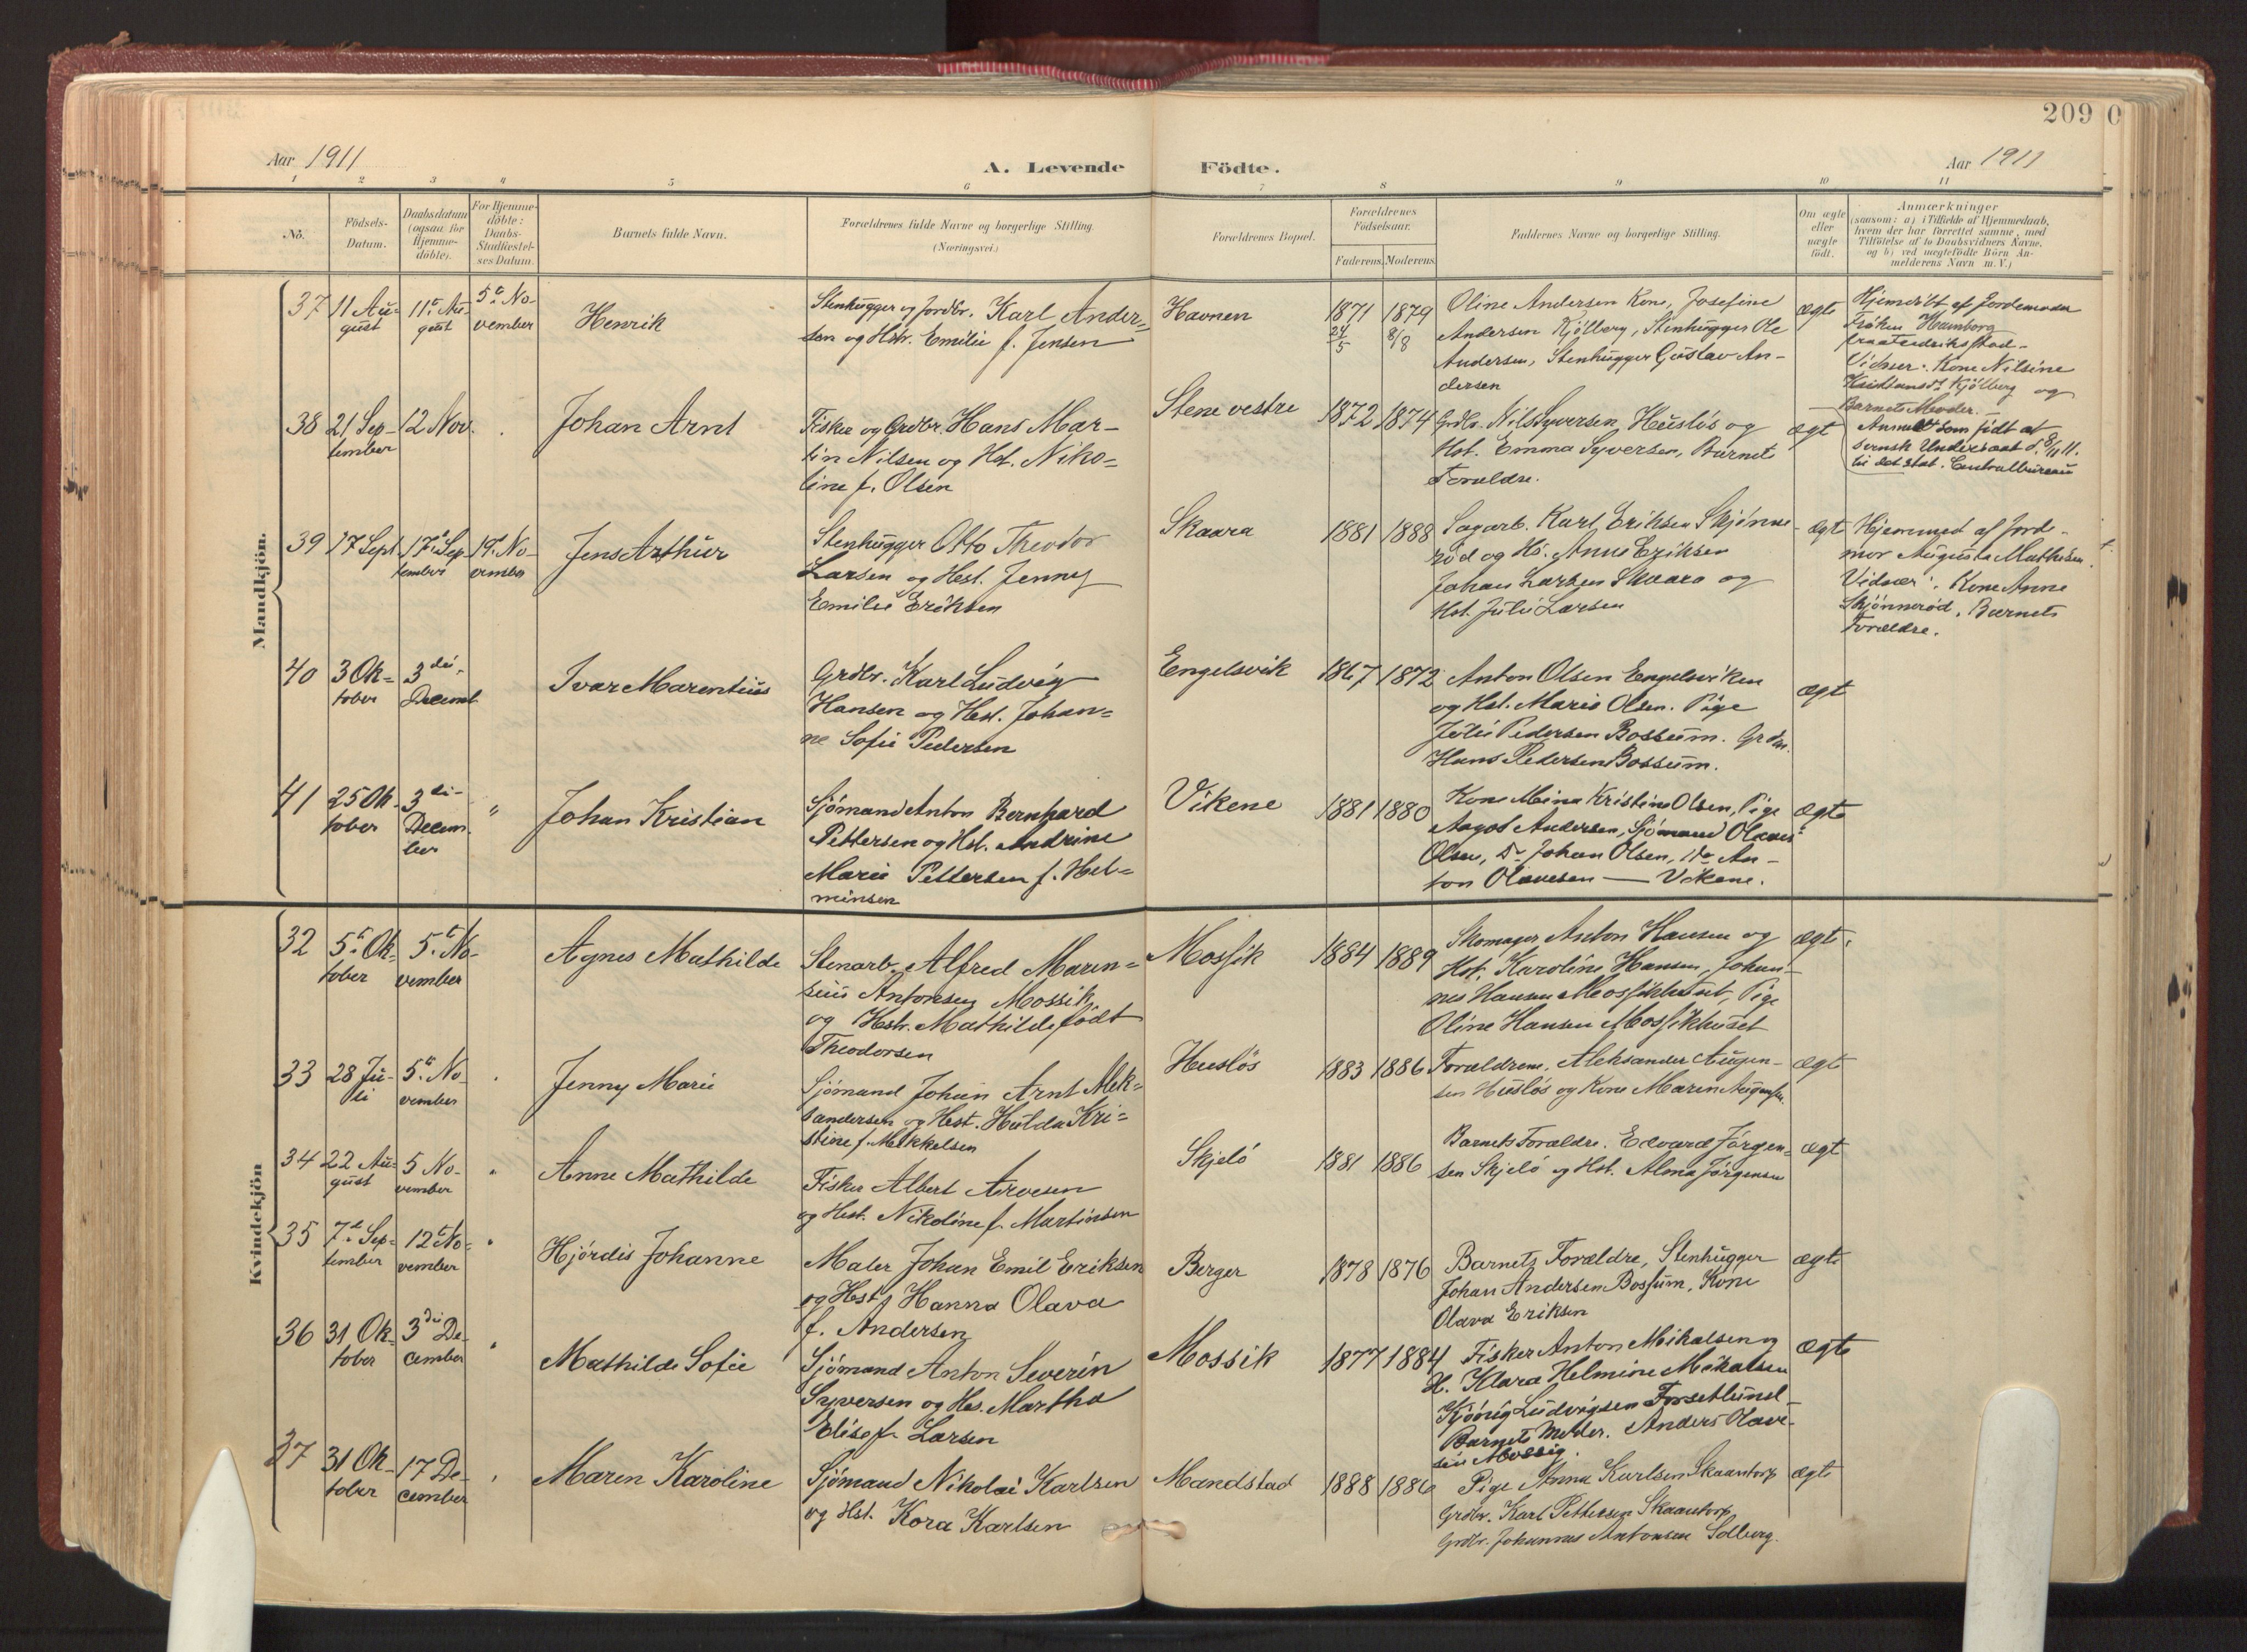 209
0
Aar 1911
A. Levende Födte.
Aar 1911
1 2 3 4 5 6 7 8 9 10 11
No.
Födsels-
Datum.
Daabsdatum
(ogsaa for
Hjemme-
döbte).
For Hjemme-
döbte:
Daabs-
Stadfæstel-
ses Datum.
Barnets fulde Navn.
Forældrenes fulde Navne og borgerlige Stilling.
(Næringsvei.)
Forældrenes Bopæl.
Forældrenes
Födselsaar.
Faderens. Moderens.
Faddernes Navne og borgerlige Stilling.
Om ægte
eller
uægte
födt.
Anmærkninger
(saasom: a) i Tilfælde af Hjemmedaab,
hvem der har forrettet samme, med
Tilföielse af to Daabsvidners Navne,
og b) ved uægtefödte Börn An-
melderens Navn m. V.)
Mandkjön.
37
11 Au-
gust
11te Au-
gust
5te No-
vember
Henrik
Stenhugger og Jordbr. Karl Ander-
sen og Hstr. Emilie f. Jensen
Havnen
1871
24/5
1879
8/8
Oline Andersen Kone, Josefine
Andersen Kjölberg, Stenhugger Ole
Andersen, Stenhugger Gustav An-
dersen
ægte
Hjemdöbt af Jordemoder
Fröken Hamborg
fra Fredriksstad -
Vidner: Kone Nilsine
Kjölberg og
Barnets Moder.
38
21 Sep-
tember
12 Nov.
Johan Arnt
Fisker og Grdbr. Hans Mar-
tin Nilsen og Hst. Niko-
line f. Olsen
Stene vestre
1872
1874
Grdbr. Nils Syversen Huslös og
Hst. Emma Syversen, Barnets
Forældre.
ægt
Anmeldt som födt af
svensk Undersaat d. 8/11 11.
til det stat. Centralbureau
39
17 Sept
17de Sep-
tember
19de No-
vember
Jens Arthur
Stenhugger Otto Theodor
Larsen og Hst. Jenny
Emilie Eriksen
Skaara
1881
1888
Sagarb. Karl Eriksen Skjönne-
röd og Hs. Anne Eriksen
Johan Larsen Skaara og
Hst. Julie Larsen
ægt
Hjemmed af Jord-
mor Augusta Mathisen.
Vidner: Kone Anne
Skjönneröd. Barnets
Forældre.
40
3 Ok-
tober
3die
Decemb.
Ivar Marentius
Grdbr. Karl Ludvig
Hansen og Hst. Johan-
ne Sofie Pedersen
Engelsvik
1867
1872
Anton Olsen Engelsviken
og Hst. Marie Olsen. Pige
Julie Pedersen Bossum. Grdm.
Hans Pedersen Bossum.
ægt
41
25 Ok-
tober
3die
Decem-
ber
"
Johan Kristian
Sjömand Anton Bernhard
Pettersen og Hst. Andrine
Marie Pettersen f. Hel-
minsen
Vikene
1881
1880
Kone Mina Kristine Olsen, Pige
Aagot Andersen, Sjömand Olaves
Olsen, Do Johan Olsen, do An-
ton Olavesen — Vikene.
ægte
Kvindekjön
32
5te Ok-
tober
5te No-
vember
Agnes Mathilde
Stenarb. Alfred Maren-
sius Antonsen Mossik
og Hstr. Mathilde födt
Theodorsen
Mossik
1884
1889
Skomager Anton Hansen og
Hst. Karoline Hansen, Johan-
nes Hansen Mossikhuset, Pige
Oline Hansen Mossikhuset
ægte
33
28 Ju-
li
5te No-
vember
Jenny Marie
Sjömand Johan Arnt Alek-
sandersen og Hst. Hulda Kri-
stine f. Mikkelsen
Huslös
1883
1886
Forældrene, Aleksander Augun-
sen Huslös og Kone Maren Augunsen.
ægte
34
22 Au-
gust
5 No-
vember
"
Anne Mathilde
Fisker Albert Arvesen
og Hst. Nikoline f. Martinsen
Skjelö
1881
1886
Barnets Forældre. Edvard Jörgen-
sen Skjelö og Hst. Alma Jörgensen
ægt
35
7de Sep-
tember
12te No-
vember
"
Hjördis Johanne
Maler Johan Emil Eriksen
og Hst. Hanna Olava
f. Andersen
Berger
1878
1876
Barnets Forældre, Stenhugger
Johan Andersen Bossum, Kone
Olava Eriksen
ægte
36
31 Ok-
tober
3die De-
cember
"
Mathilde Sofie
Sjömand Anton Severin
Syversen og Hs. Martha
Elise f. Larsen
Mossik
1877
1884
Fisker Anton Mikalsen og
H. Klara Helmine Mikalsen
Ludvigsen
Barnets Moder. Anders Olave-
sen Mossig.
ægte
37
31 Ok-
tober
17 De-
cember
"
Maren Karoline
Sjömand Nikolai Karlsen
og Hst. Kora Karlsen
Mandstad
1888
1886
Pige Anna Karlsen Skaantorp
Grdbr. Karl Pettersen Skaantorp
Grdbr. Johannes Antonsen Solberg.
ægte